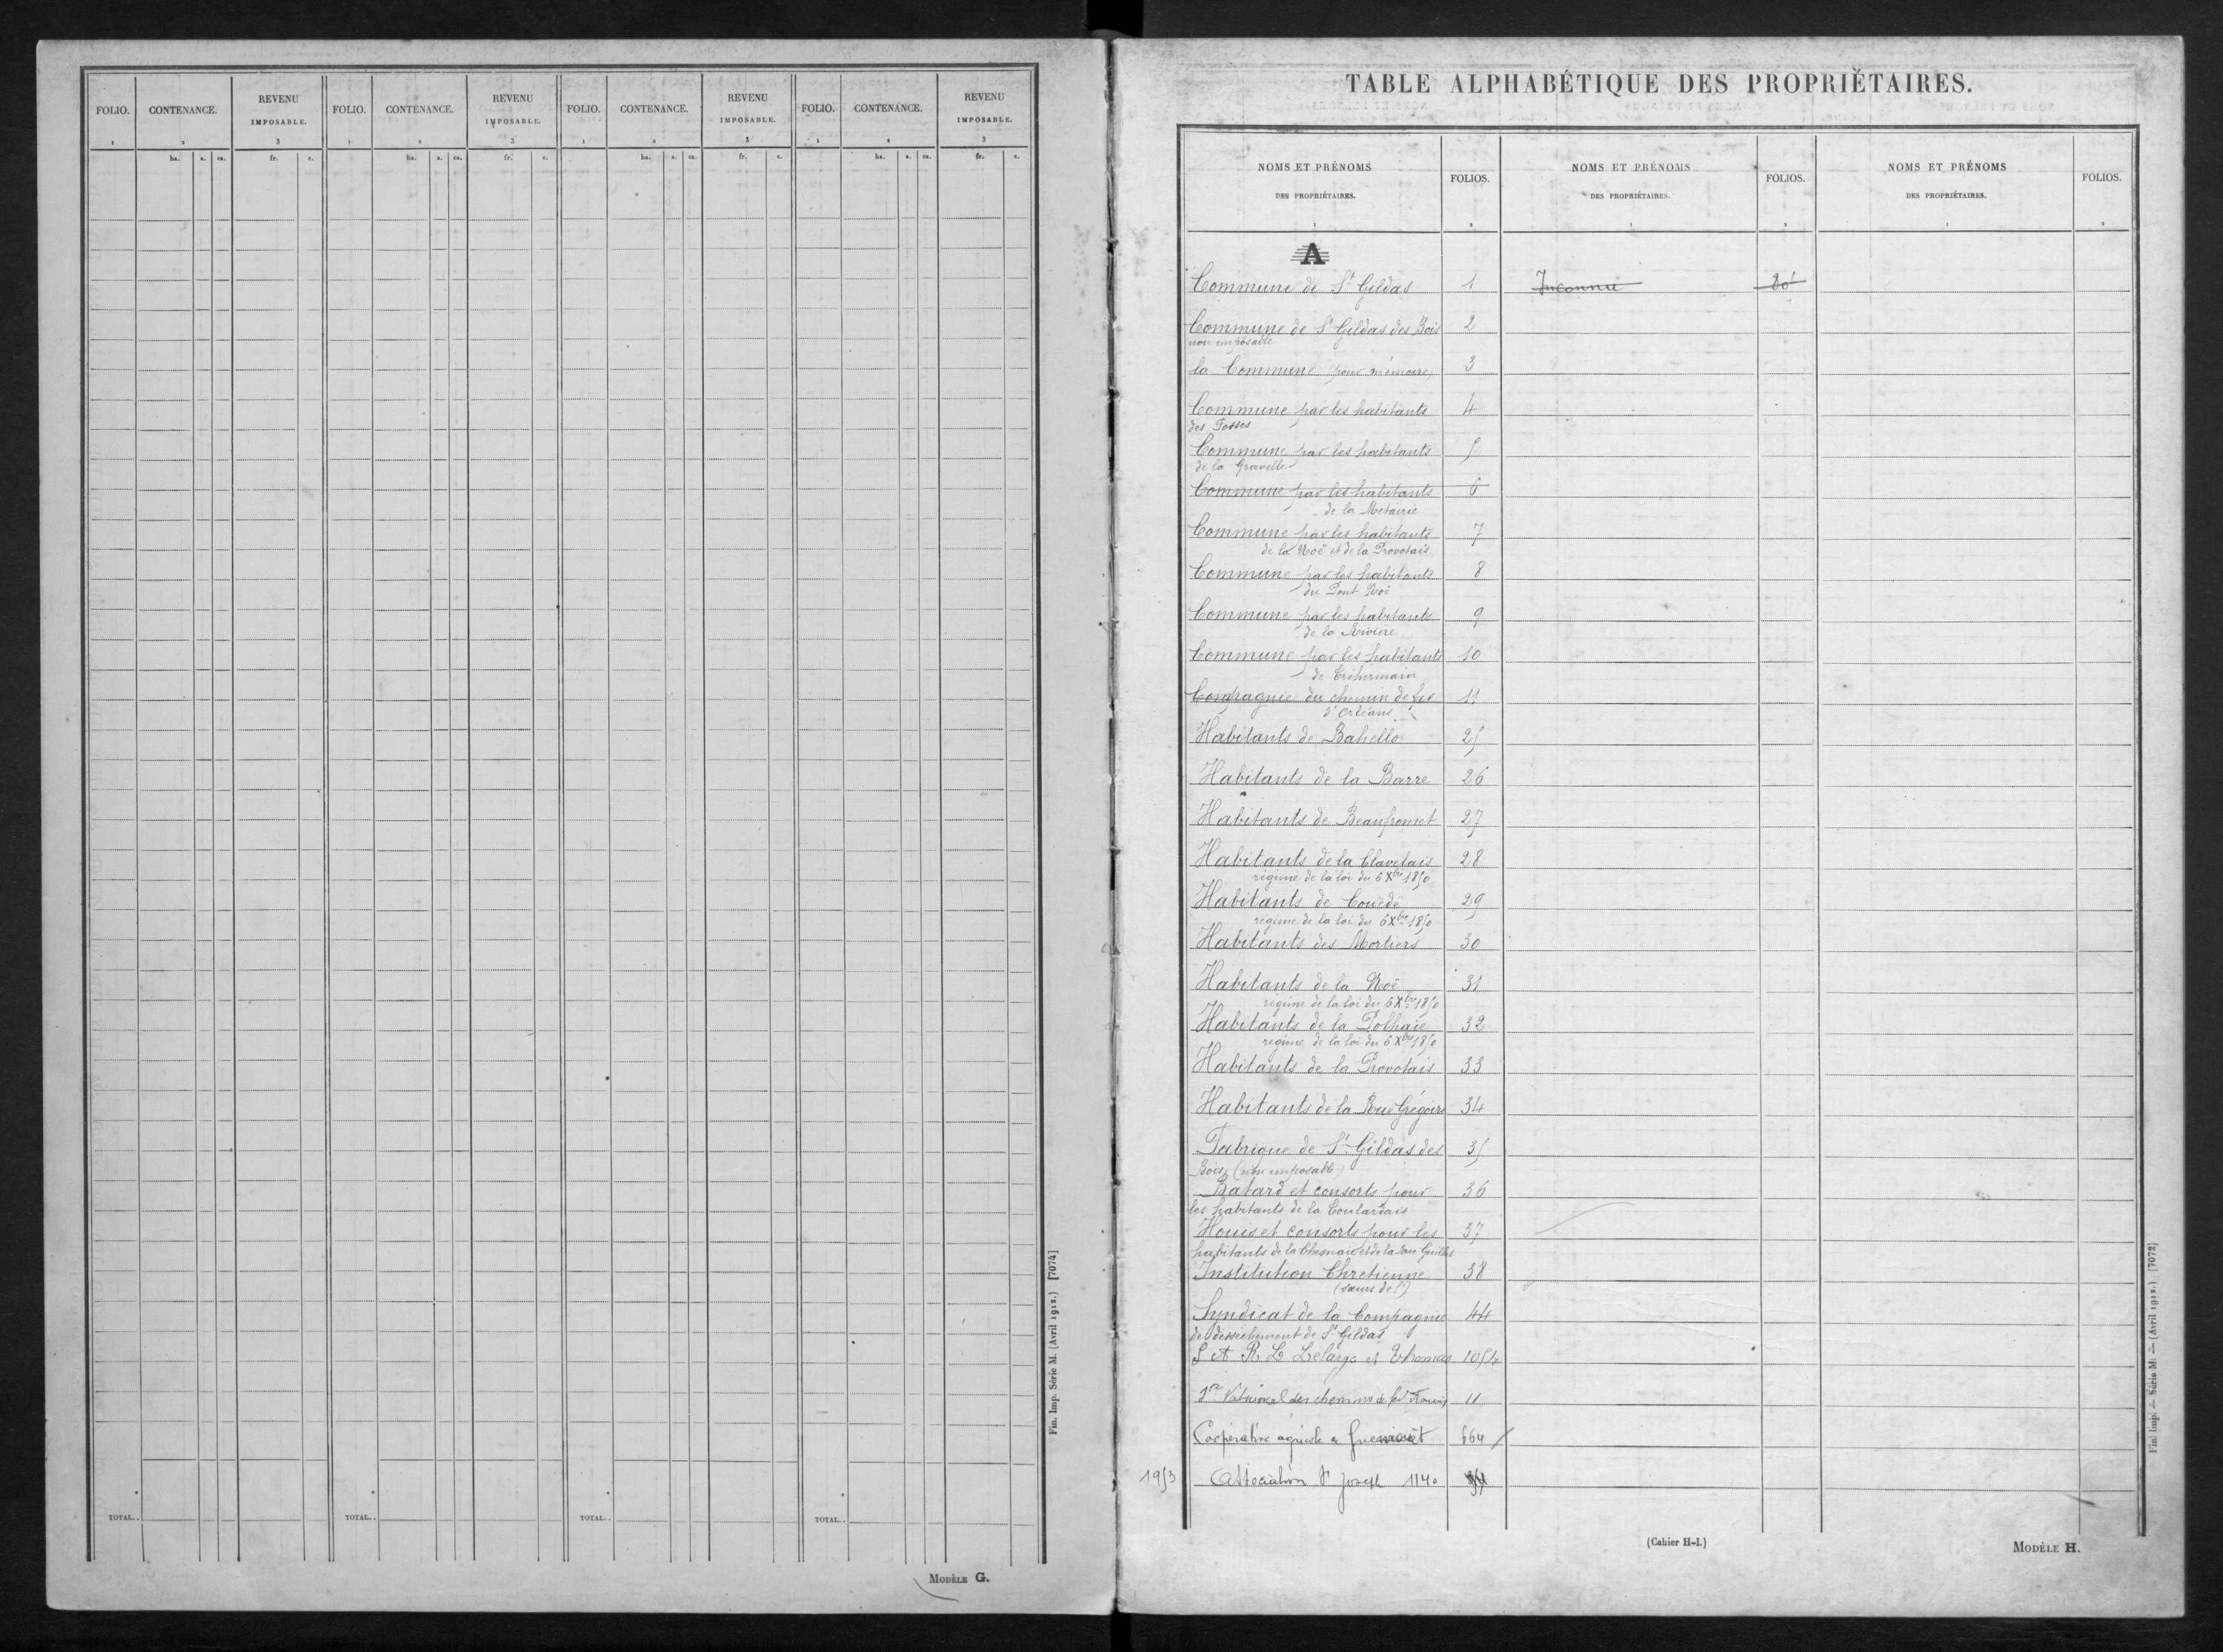 FOLIO. CONTENANCE. REVENU IMPOSABLE. FOLIO. CONTENANCE. REVENU IMPOSABLE. FOLIO. CONTENANCE. REVENU IMPOSABLE. FOLIO. CONTENANCE. REVENU IMPOSABLE.
1 2 3 1 2 3 1 2 3 1 2 3
ha. a. ca. fr. c. ha. a. ca. fr. c. ha. a. ca. fr. c. ha. a. ca. fr. c.
TOTAL.. TOTAL.. TOTAL.. TOTAL..
MODÈLE G.
Fin. Imp. Série M. (Avril 1912.) [7074]
TABLE ALPHABÉTIQUE DES PROPRIÉTAIRES.
NOMS ET PRÉNOMS DES PROPRIÉTAIRES. FOLIOS. NOMS ET PRÉNOMS DES PROPRIÉTAIRES. FOLIOS. NOMS ET PRÉNOMS DES PROPRIÉTAIRES. FOLIOS.
1 2 1 2 1 2
A
Commune de St Gildas 1 Inconnu
Commune de St Gildas des Bois 2
non imposable
la Commune (pour mémoire) 3
Commune par les habitants 4
des Fosses
Commune par les habitants 5
de la Gravelle
Commune par les habitants 6
de la Metairie
Commune par les habitants 7
de la Noë et de la Provotais
Commune par les habitants 8
du Pont Noë
Commune par les habitants 9
de la Rivière
Commune par les habitants 10
de Tréhermain
Compagnie du chemin de fer 11
d'Orléans
Habitants de Bahello 25
Habitants de la Barre 26
Habitants de 27
Habitants de la Clavelais 28
régime de la loi du 6 Xbre 1850
Habitants de Couëdé 29
régime de la loi du 6 Xbre 1850
Habitants des Mortiers 30
Habitants de la Noë 31
régime de la loi du 6 Xbre 1850
Habitants de la 32
régime de la loi du 6 Xbre 1850
Habitants de la Provotais 33
Habitants de la Rue Grégoire 34
Fabrique de St Gildas des 35
Bois (non imposable)
Batard et consorts pour 36
les habitants de la Coulardais
Houis et consorts pour les 37
habitants de la Chesnaie et de la
Institution Chretienne 38
(sœurs de St)
Syndicat de la Compagnie 44
de dessechement de St Gildas
S A R L Lelarge et Thomas 1054
des chemins de fer 11
Coopérative agricole de 664
1953 Association St Joseph 1140
(Cahier H-I.)
MODÈLE H.
Fin. Imp. — Série M. — (Avril 1912.) [7072]